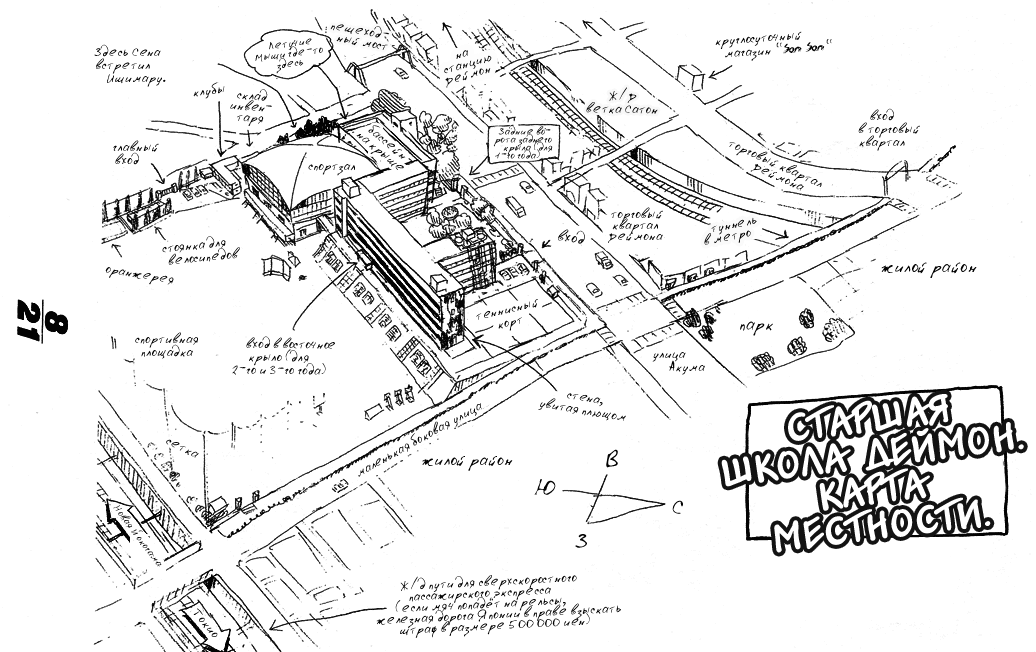 Здесь Сена
встретил
Ишимару.
клубы
склад
инвен-
таря
летучие
мыши где-то
здесь
пешеход-
ный мост
на
станцию
Деймон
круглосуточный
магазин "Son Son"
ж/д
ветка Сатон
вход
в торговый
квартал
торговый квартал
Деймона
главный
вход
спортзал
бассейн
на крыше
Задние во-
рота заднего
крыла (для
1-го года)
торговый
квартал
Деймона
туннель
в метро
вход
стоянка для
велосипедов
оранжерея
жилой район
8
21
спортивная
площадка
вход в восточное
крыло (для
2-го и 3-го года)
теннисный
корт
парк
улица
Акума
стена,
увитая плющом
маленькая боковая улица
сетка
жилой район
СТАРШАЯ
ШКОЛА ДЕЙМОН.
КАРТА
МЕСТНОСТИ.
В
Ю
С
З
Токио
ж/д пути для сверхскоростного
пассажирского экспресса
(если мяч попадёт на рельсы,
железная дорога Японии в праве взыскать
штраф в размере 500 000 иен)